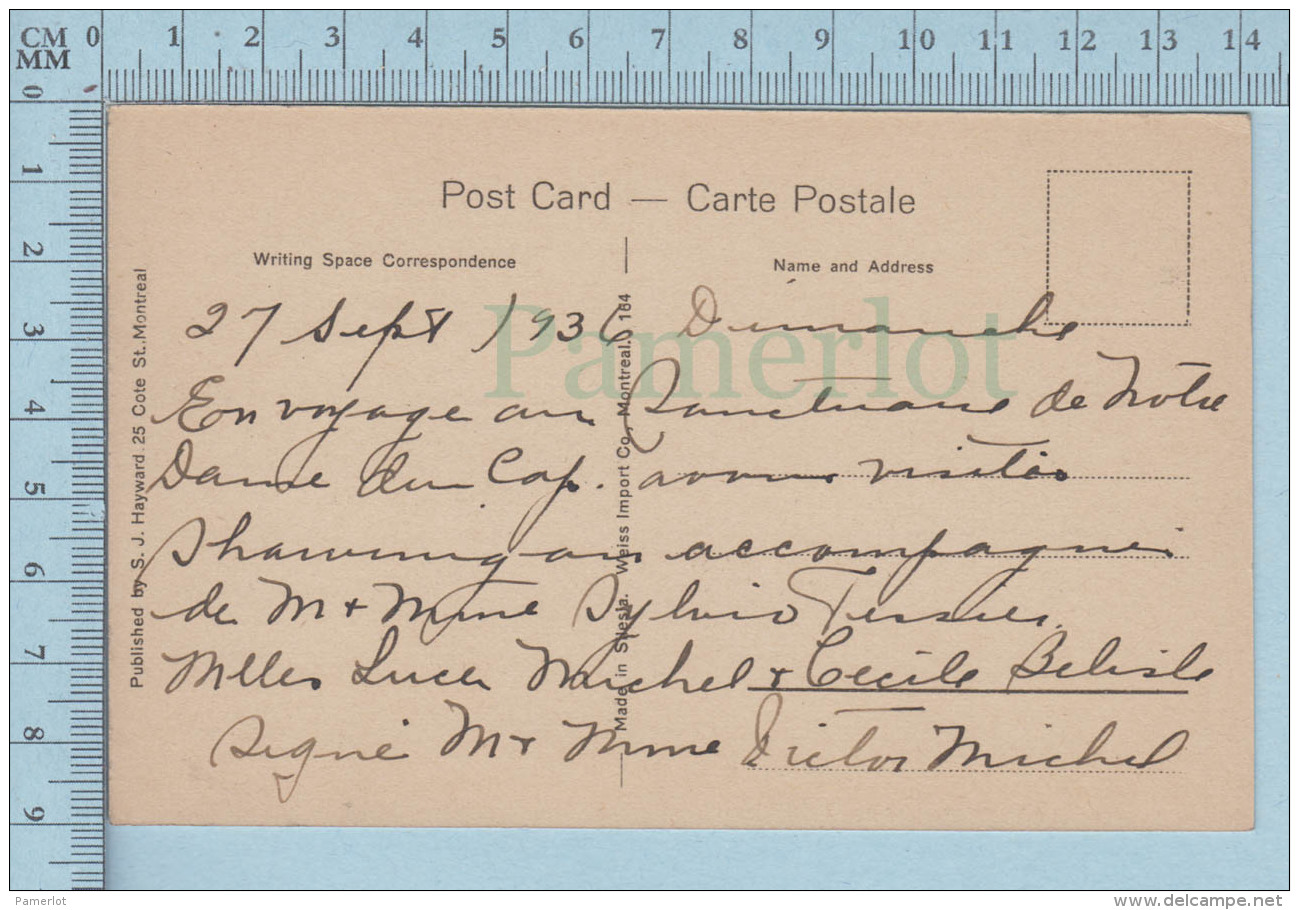 CM 0 1 2 3 4 5 6 7 8 9 10 11 12 13 14
MM
0 1 2 3 4 5 6 7 8 9
Post Card — Carte Postale
Writing Space Correspondence
Name and Address
Published by S. J. Hayward. 25 Cote St., Montreal
Made in Silesia. Weiss Import Co., Montreal. 164
27 Sept 1936 Dimanche
En voyage au Sanctuaire de Notre
Dame du Cap. avons visités
Shawinigan accompagnés
de M & Mme Sylvio Tessier
Mlles Luce Michel & Cécile Belisle
signé M & Mme Victor Michel
Pamerlot
Pamerlot
www.delcampe.net